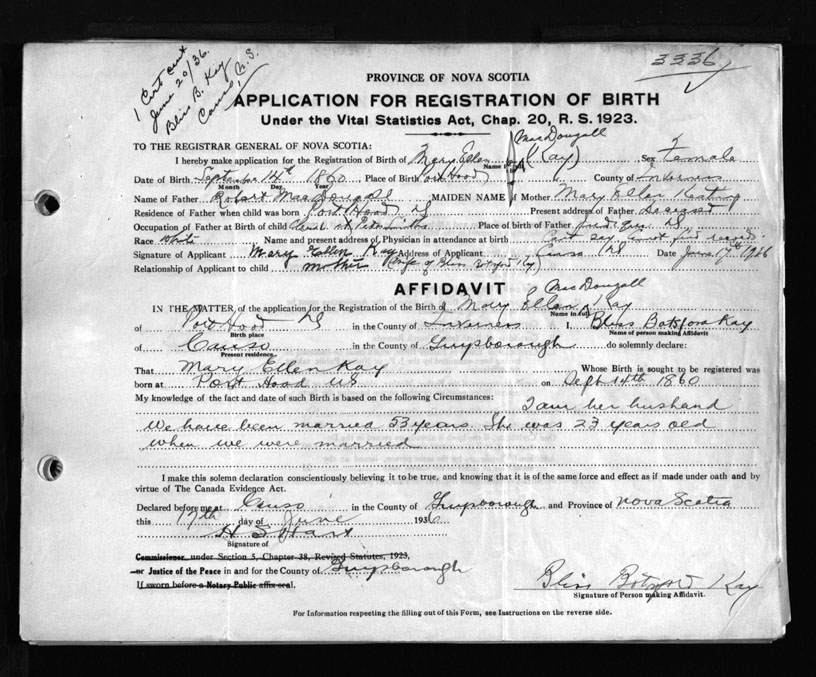 1 Cert out
June 20/36.
Bliss B. Kay
Canso, N.S.
3336
PROVINCE OF NOVA SCOTIA
APPLICATION FOR REGISTRATION OF BIRTH
Under the Vital Statistics Act, Chap. 20, R. S. 1923.
TO THE REGISTRAR GENERAL OF NOVA SCOTIA:
MacDougall
I hereby make application for the Registration of Birth of Mary Ellen (Kay) Sex Female
Name in full
Date of Birth September 14th 1860 Place of Birth Port Hood County of Inverness
Month Day Year
Name of Father Robert MacDougall MAIDEN NAME of Mother Mary Ellen Keating
Residence of Father when child was born Port Hood NS Present address of Father deceased
Occupation of Father at Birth of child Place of Birth of Father NS
Race white Name and present address of Physician in attendance at birth Cant say record
Signature of Applicant Mary Ellen Kay Address of Applicant Canso NS Date June 17th 1936
Relationship of Applicant to child mother (wife of Bliss Kay)
AFFIDAVIT
MacDougall
IN THE MATTER of the application for the Registration of the Birth of Mary Ellen Kay
Name in full
of Port Hood NS in the County of Inverness I, Bliss Botsford Kay
Birth place Name of person making Affidavit
of Canso in the County of Guysborough do solemnly declare:
Present residence
That Mary Ellen Kay Whose Birth is sought to be registered was
born at Port Hood NS on Sept 14th 1860
My knowledge of the fact and date of such Birth is based on the following Circumstances: I am her husband
We have been married 53 years. She was 23 years old
when we were married
I make this solemn declaration conscientiously believing it to be true, and knowing that it is of the same force and effect as if made under oath and by
virtue of The Canada Evidence Act.
Declared before me at Canso in the County of Guysborough and Province of Nova Scotia
this 17th day of June 1936
H S Hart
Signature of
Commissioner under Section 5, Chapter 38, Revised Statutes, 1923,
or Justice of the Peace in and for the County of Guysborough
If sworn before a Notary Public affix seal.
Bliss Botsford Kay
Signature of Person making Affidavit.
For Information respecting the filling out of this Form, see Instructions on the reverse side.